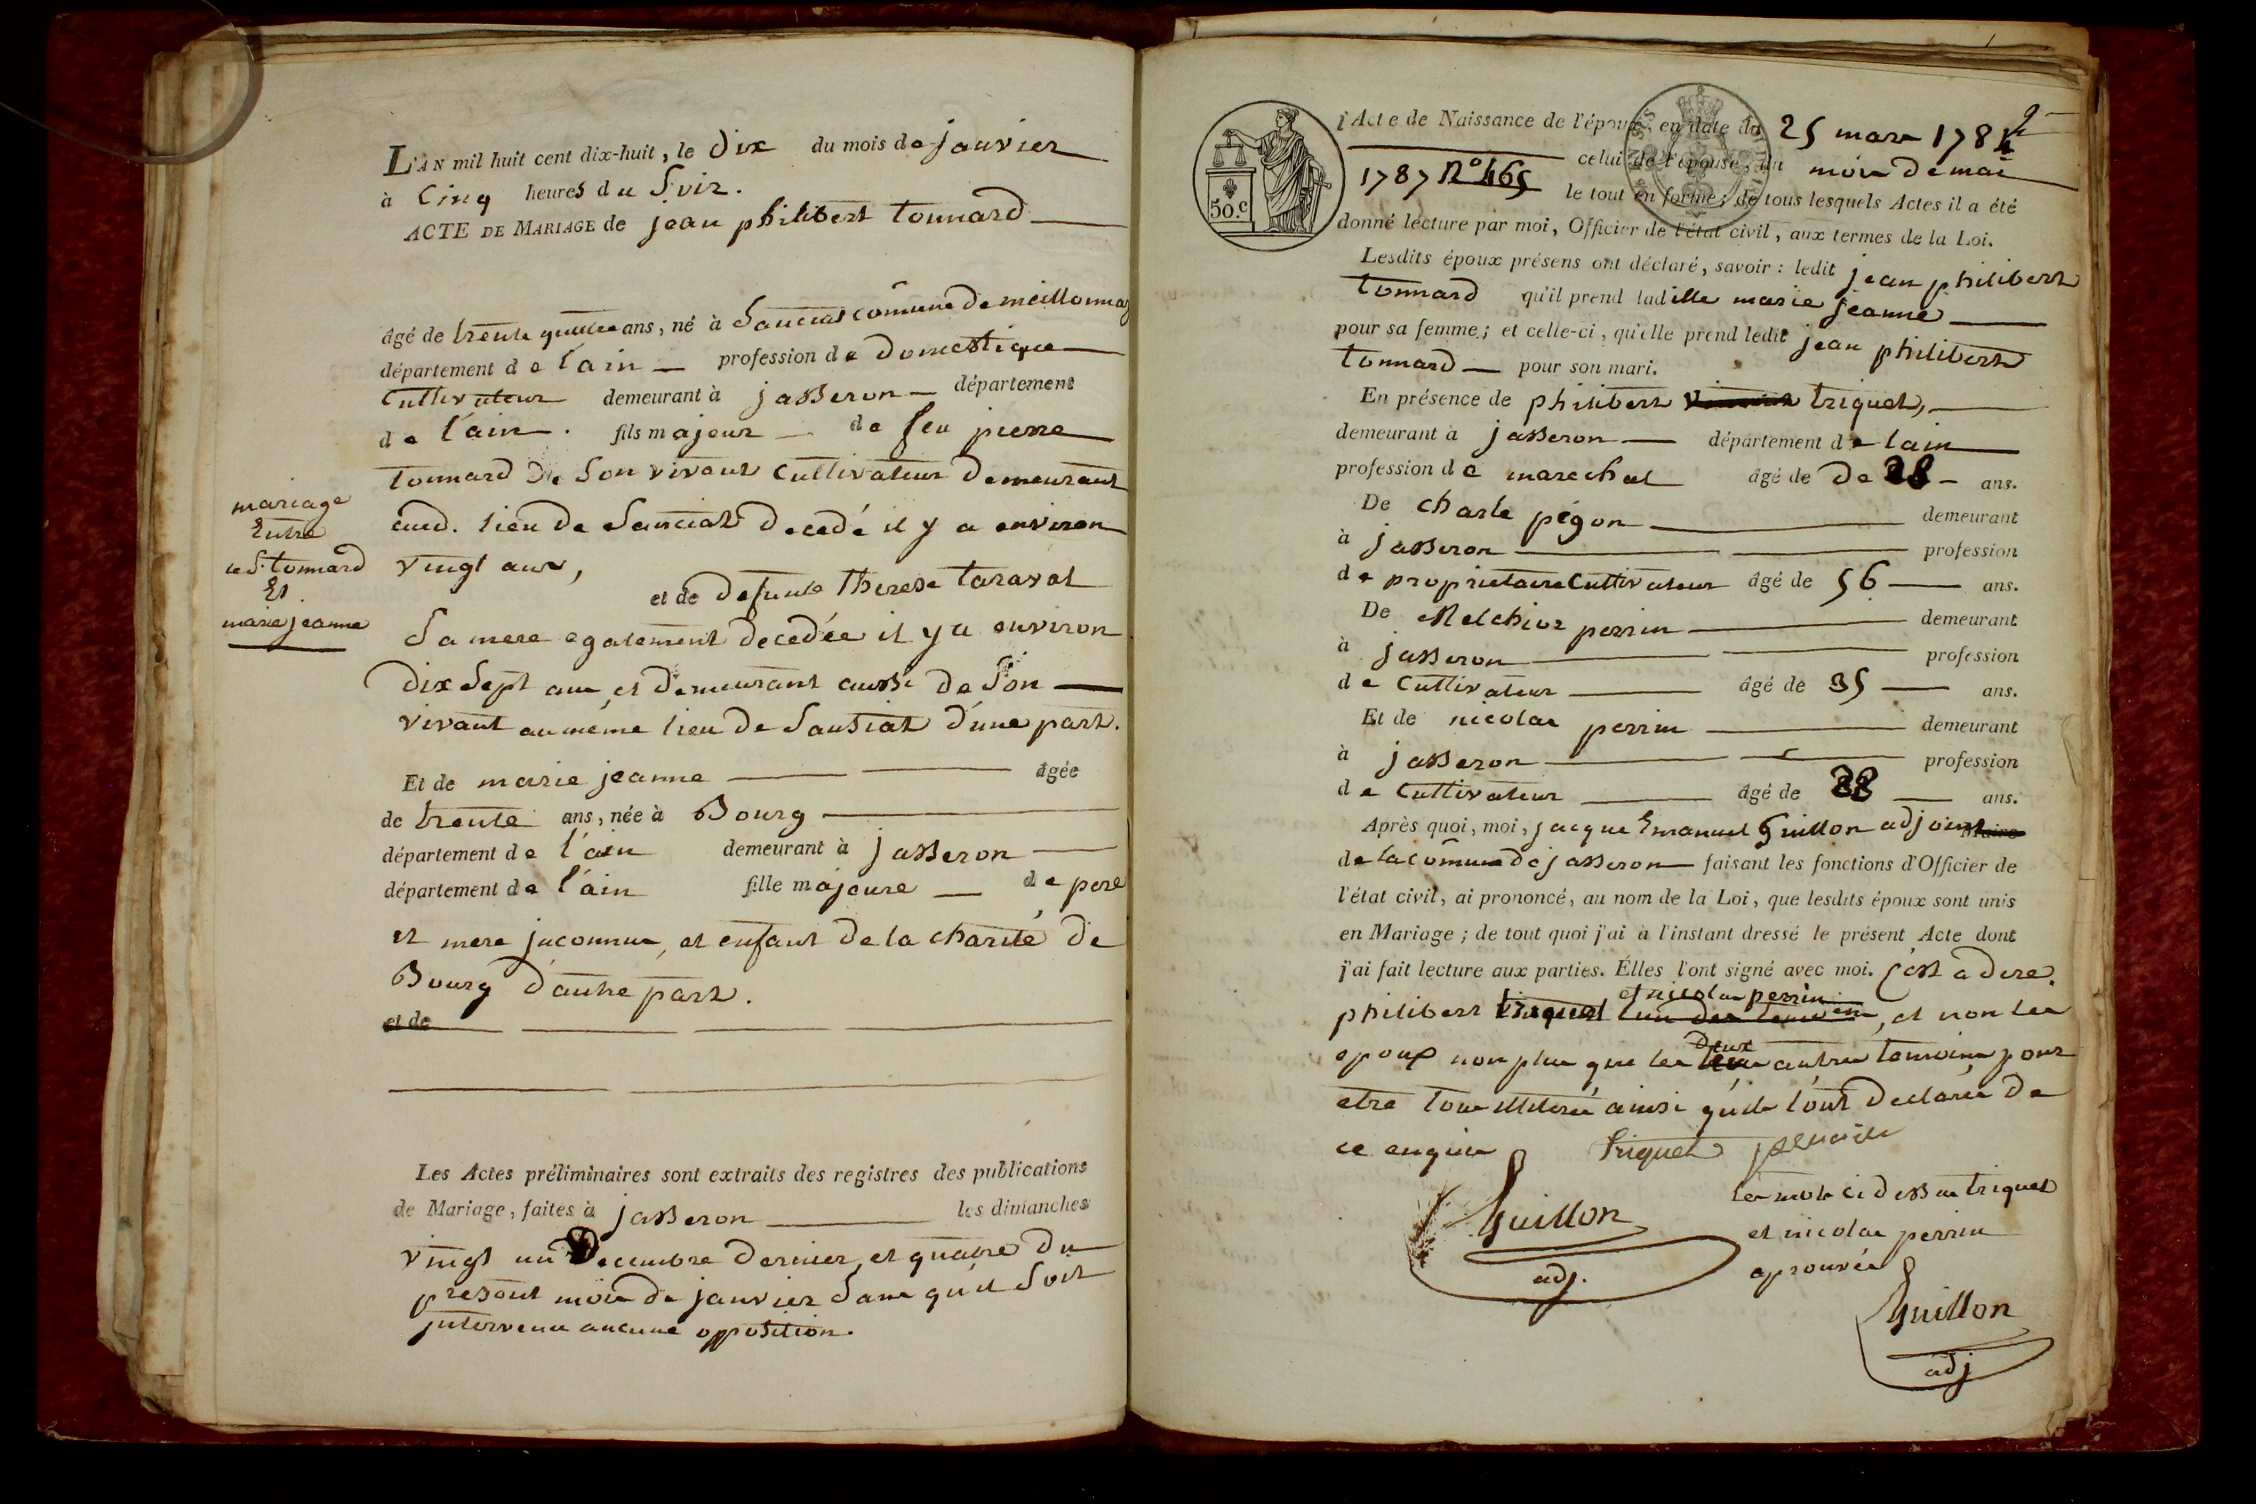 L'AN mil huit cent dix-huit, le Dix du mois de janvier
à Cinq heures du Soir.
ACTE DE MARIAGE de jean philibert tonnard
âgé de trente quatre ans, né à Sanciat comune de meillonnas
département de l'ain profession de Domestique
Cultivateur demeurant à jasseron département
de l'ain. fils majeur de feu pierre
tonnard De Son vivant Cultivateur Demeurant
aud. lieu de Sanciat decedé il y a environ
vingt ans,
et de Defunte therese taravat
Sa mere egalement decedée il y a environ
Dix Sept ans, et Demeurant aussi De Son
vivant au même lieu De Sansiat D'une part.
mariage
Entre
le Sr. tonnard
Et
marie jeanne
Et de marie jeanne âgée
de trente ans, née à Bourg
département de l'ain demeurant à jasseron
département de l'ain fille majeure de pere
et mere jnconnus, et enfant De la charité De
Bourg D'autre part.
et de
Les Actes préliminaires sont extraits des registres des publications
de Mariage, faites à jasseron les dimanches
vingt un Decembre Dernier, et quatre Du
present mois De janvier Sans qu'il Soit
jntervenu aucune opposition.
50.c
l'Acte de Naissance de l'époux, en date du 25 mars 178
celui de l'épouse, du mois De mai
1787 N° 465 le tout en forme; de tous lesquels Actes il a été
donné lecture par moi, Officier de l'état civil, aux termes de la Loi.
Lesdits époux présens ont déclaré, savoir: ledit jean philibert
tonnard qu'il prend ladille marie jeanne
pour sa femme; et celle-ci, qu'elle prend ledit jean philibert
tonnard pour son mari.
En présence de philibert triquet,
demeurant à jasseron département de lain
profession de marechal âgé de De 28 ans.
De charle pégon demeurant
à jasseron profession
de proprietaire Cultivateur âgé de 56 ans.
De Melchior perrin demeurant
à jasseron profession
de Cultivateur âgé de 35 ans.
Et de nicolas perrin demeurant
à jasseron profession
de Cultivateur âgé de 38 ans.
Après quoi, moi, jacque Emanuel Guillon adjoint Maire
de la comune De jasseron faisant les fonctions d'Officier de
l'état civil, ai prononcé, au nom de la Loi, que lesdits époux sont unis
en Mariage; de tout quoi j'ai à l'instant dressé le présent Acte dont
j'ai fait lecture aux parties. Élles l'ont signé avec moi. C'est a dire
et nicolas perrin
philibert triquet l'un des temoins, et non les
Deux
epoux non plus que les autres temoins pour
etre tous illiterés ainsi qu'ils l'ont Declarés De
ce enquis Triquet
Guillon
adj.
les mots ci dessus triquet
et nicolas perrin
aprouvés
Guillon
adj